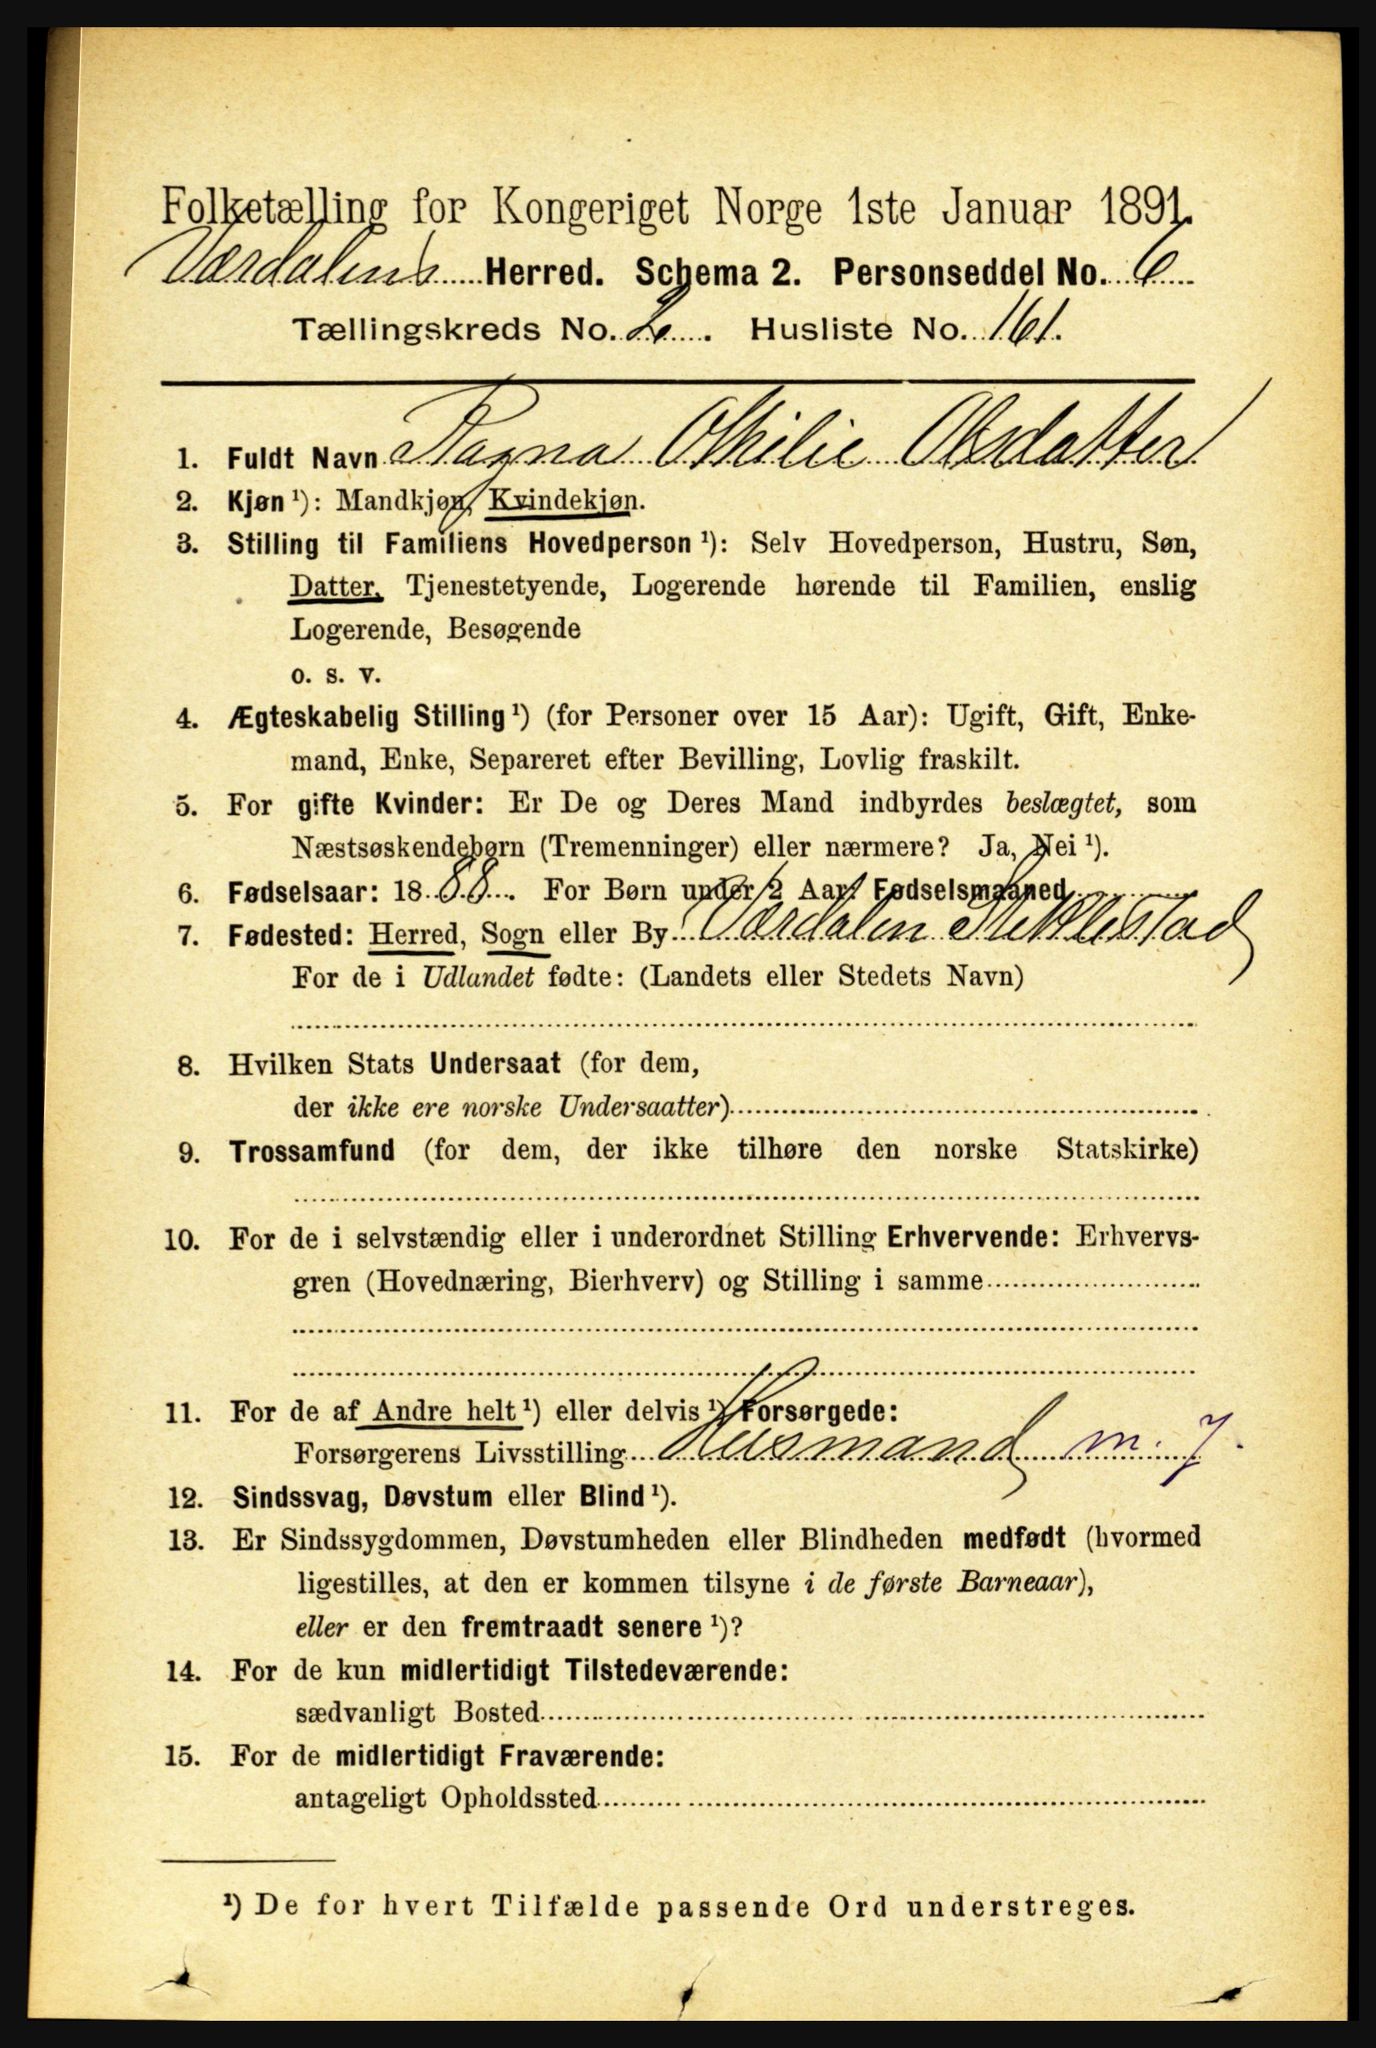 Folketælling for Kongeriget Norge 1ste Januar 1891.
Værdalens Herred. Schema 2. Personseddel No. 6
Tællingskreds No. 2. Husliste No. 161.
1. Fuldt Navn Ragna Othilie Olsdatter
2. Kjøn ¹): Mandkjøn, Kvindekjøn.
3. Stilling til Familiens Hovedperson ¹): Selv Hovedperson, Hustru, Søn,
Datter, Tjenestetyende, Logerende hørende til Familien, enslig
Logerende, Besøgende
o. s. v.
4. Ægteskabelig Stilling ¹) (for Personer over 15 Aar): Ugift, Gift, Enke-
mand, Enke, Separeret efter Bevilling, Lovlig fraskilt.
5. For gifte Kvinder: Er De og Deres Mand indbyrdes beslægtet, som
Næstsøskendebørn (Tremenninger) eller nærmere? Ja, Nei ¹).
6. Fødselsaar: 1888. For Børn under 2 Aar: Fødselsmaaned
7. Fødested: Herred, Sogn eller By Værdalen Stiklestad
For de i Udlandet fødte: (Landets eller Stedets Navn)
8. Hvilken Stats Undersaat (for dem,
der ikke ere norske Undersaatter)
9. Trossamfund (for dem, der ikke tilhøre den norske Statskirke)
10. For de i selvstændig eller i underordnet Stilling Erhvervende: Erhvervs-
gren (Hovednæring, Bierhverv) og Stilling i samme
11. For de af Andre helt ¹) eller delvis ¹) Forsørgede:
Forsørgerens Livsstilling Husmand m. j.
12. Sindssvag, Døvstum eller Blind ¹).
13. Er Sindssygdommen, Døvstumheden eller Blindheden medfødt (hvormed
ligestilles, at den er kommen tilsyne i de første Barneaar),
eller er den fremtraadt senere ¹)?
14. For de kun midlertidigt Tilstedeværende:
sædvanligt Bosted
15. For de midlertidigt Fraværende:
antageligt Opholdssted
¹) De for hvert Tilfælde passende Ord understreges.